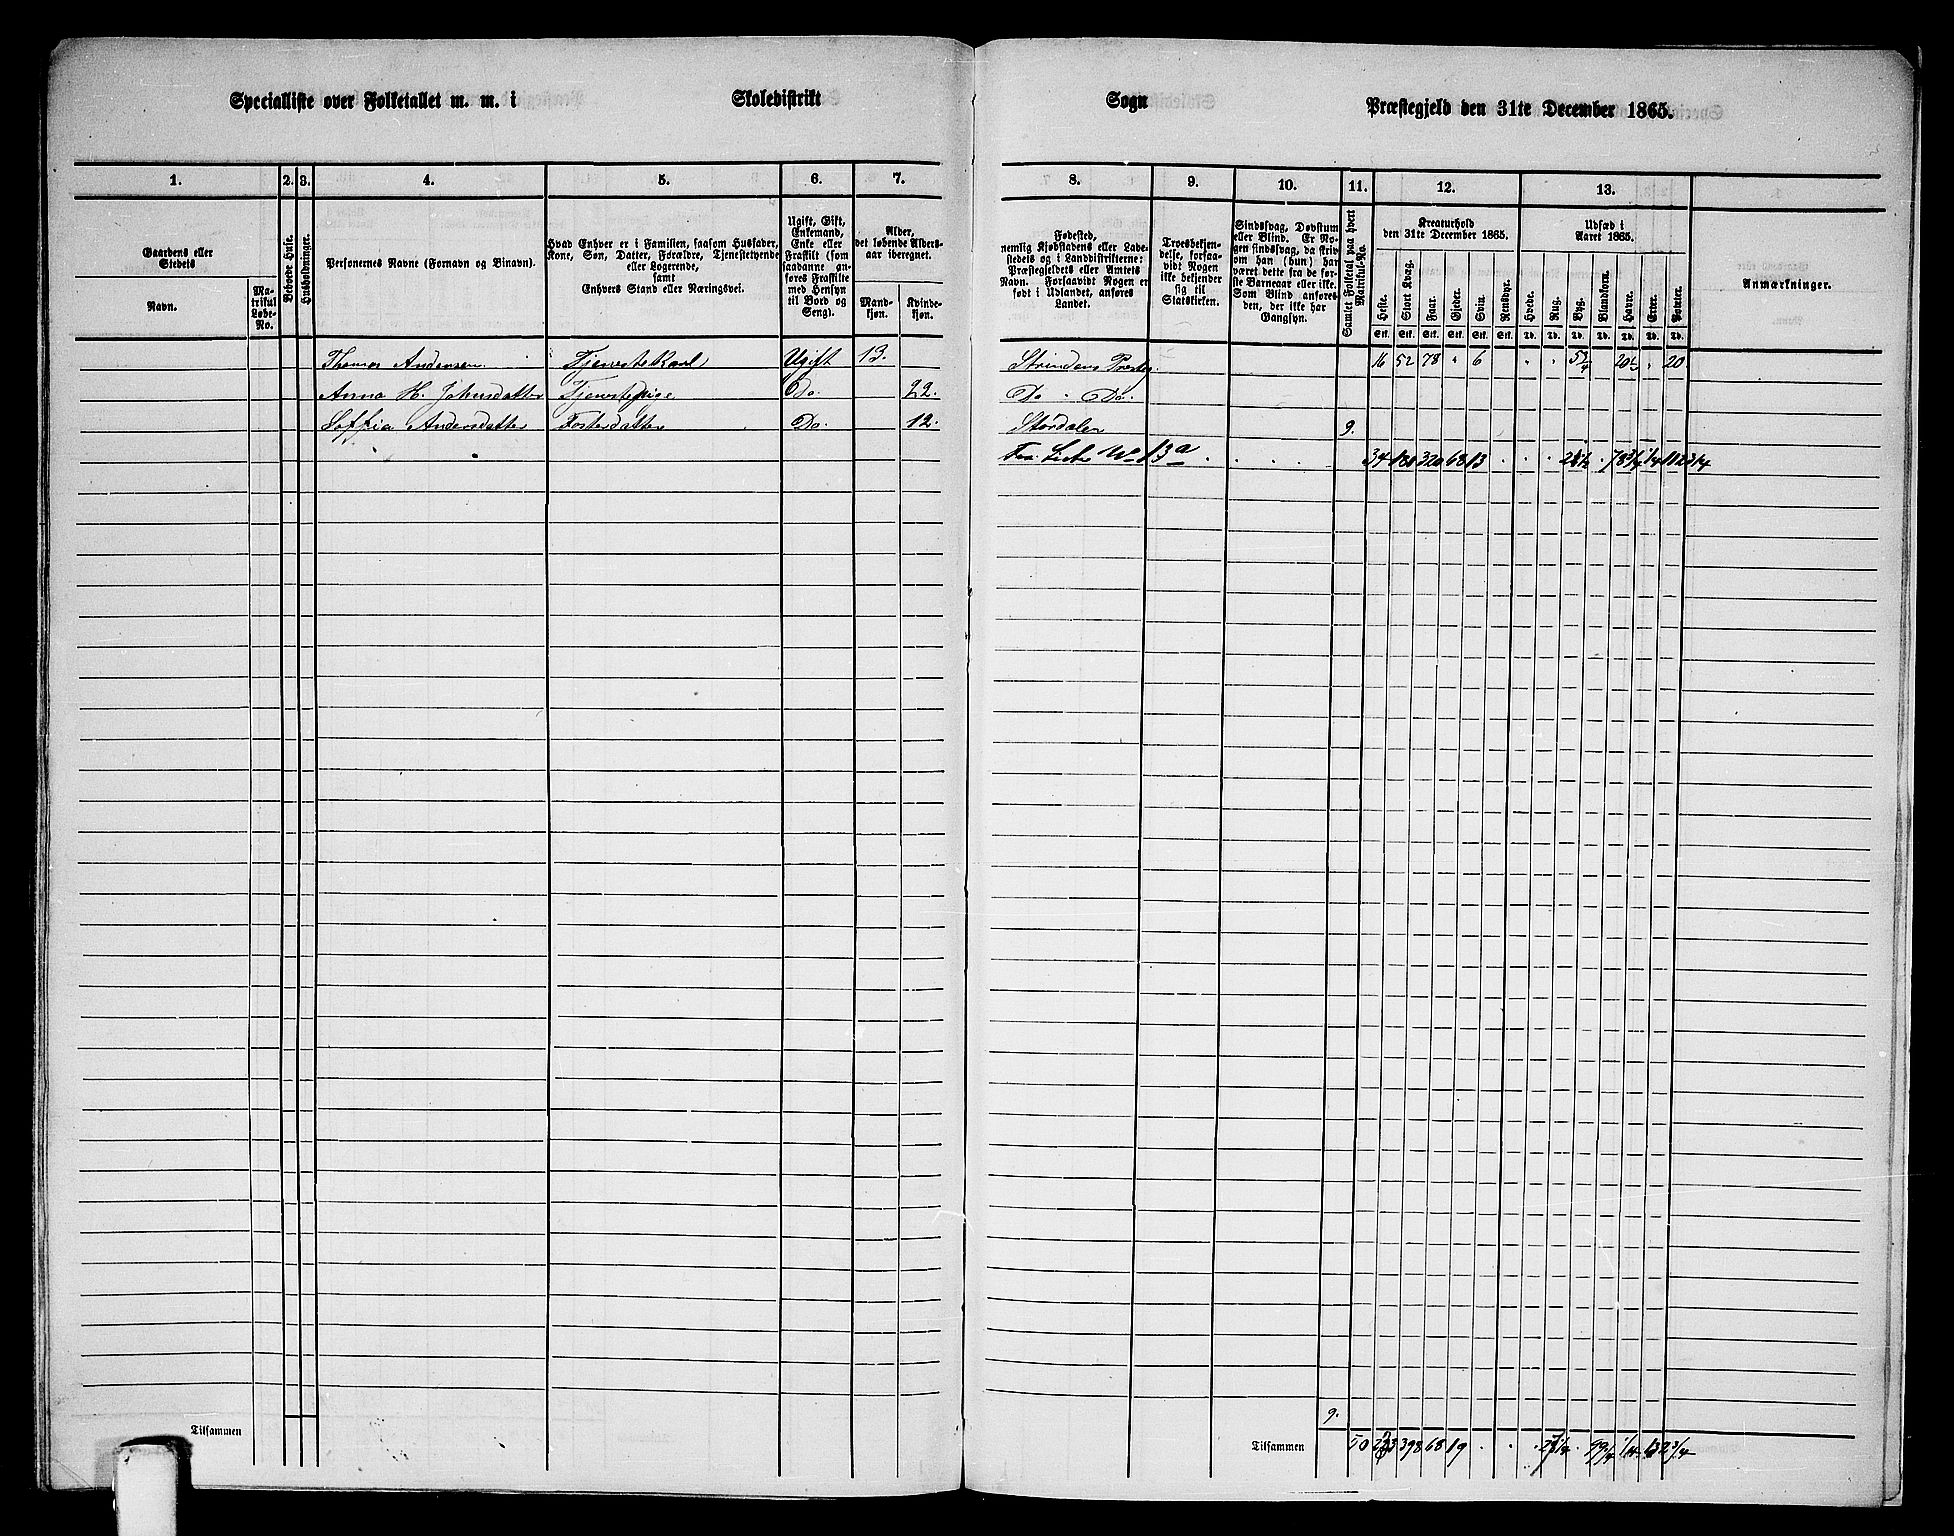 Specialliste over Folketallet m. m. i Skoledistrikt Sogn Præstegjeld den 31te December 1865.
1. 2. 3. 4. 5. 6. 7. 8. 9. 10. 11. 12. 13.
Gaardens eller Stedets
Navn.
Matrikul Løbe-No.
Bebøede Huse.
Husholdninger.
Personernes Navne (Fornavn og Binavn).
Hvad Enhver er i Familien, saasom Husfader, Kone, Søn, Datter, Forældre, Tjenestetyende eller Logerende,
samt
Enhvers Stand eller Næringsvei.
Ugift, Gift, Enkemand, Enke eller Fraskilt (som saadanne anføres Fraskilte med Hensyn til Bord og Seng).
Alder, det løbende Aldersaar iberegnet.
Mandkjøn.
Kvindekjøn.
Fødested,
nemlig Kjøbstadens eller Ladestedets og i Landdistrikterne: Præstegjeldets eller Amtets Navn. Forsaavidt Nogen er født i Udlandet, anføres Landet.
Troesbekjendelse, forsaavidt Nogen ikke bekjender sig til Statskirken.
Sindssvag, Døvstum eller Blind. Er Nogen sindssvag, da skrives om han (hun) har været dette fra de første Barneaar eller ikke. Som Blind anføres den, der ikke har Gangsyn.
Samlet Folketal paa hvert Matrikul-No.
Kreaturhold
den 31te December 1865.
Heste. Stort Kvæg. Faar. Gjeder. Svin. Rensdyr.
Stk. Stk. Stk. Stk. Stk. Stk.
Udsæd i
Aaret 1865.
Hvede. Rug. Byg. Blandkorn. Havre. Erter. Poteter.
Td. Td. Td. Td. Td. Td. Td.
Anmærkninger.
Thomas Andersen Tjenestekarl Ugift 13. Strindens Prestg. 16 52 78 " 6 " " " 20
Anna H. Johnsdatter Tjenestepige Do. 22. Do. Do.
Soffia Andersdatter Fosterdatter Do. 12. Størdalen 9.
Fra Liste No 13a 34 320 68 13 78 3/4 1/4 112 3/4
9.
Tilsammen Tilsammen 50 398 68 19 132 3/4